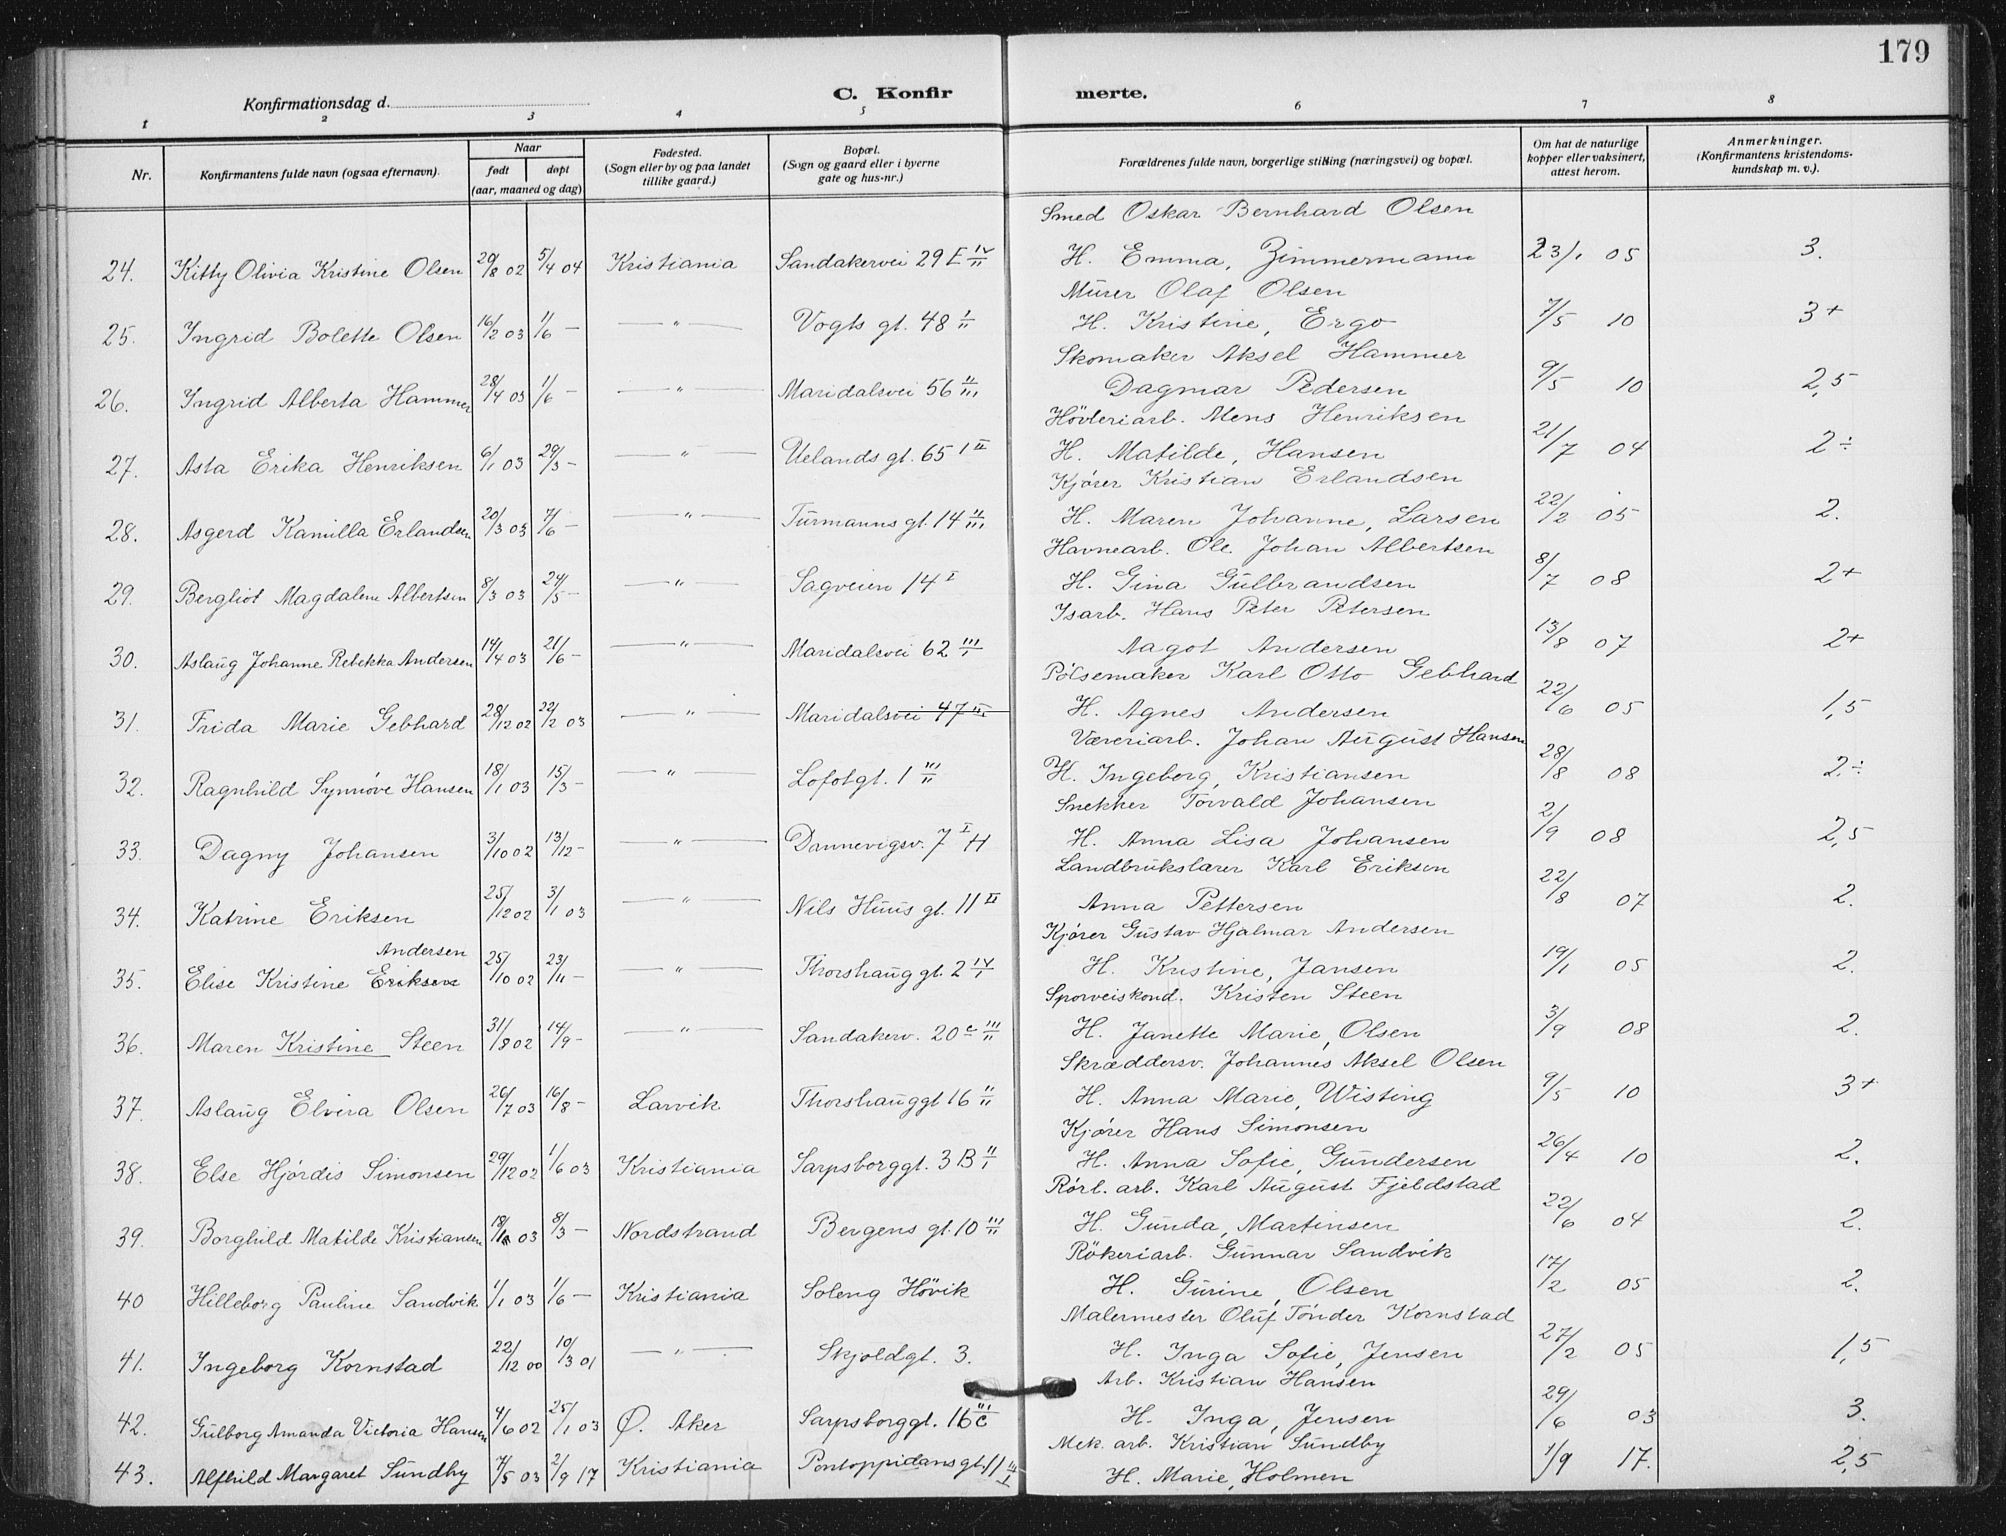 179
Konfirmationsdag d.
C. Konfir merte.
1 2 3 4 5 6 7 8
Nr. Konfirmantens fulde navn (ogsaa efternavn). Naar født døpt (aar, maaned og dag) Fødested. (Sogn eller by og paa landet tillike gaard.) Bopæl. (Sogn og gaard eller i byerne gate og hus-nr.) Forældrenes fulde navn, borgerlige stilling (næringsvei) og bopæl. Om hat de naturlige kopper eller vaksinert, attest herom. Anmerkninger. (Konfirmantens kristendomskundskap m. v.).
Smed Oskar Bernhard Olsen
24. Kitty Olivia Kristine Olsen 29/8 02 5/4 04 Kristiania Sandakervei 29 E IV/II H. Emma, Zimmermann 23/1 05 3.
Murer Olaf Olsen
25. Ingrid Bolette Olsen 16/2 03 1/6 — — " — Vogts gt. 48 I/II H. Kristine, Ergo 7/5 10 3+
Skomaker Aksel Hammer
26. Ingrid Alberta Hammer 28/4 03 1/6 — — " — Maridalsvei 56 II/III Dagmar Pedersen 9/5 10 2,5
Hövleriarb. Mens Henriksen
27. Asta Erika Henriksen 6/1 03 29/3 — — " — Uelands gt. 65 I II H. Matilde, Hansen 21/7 04 2÷
Kjører Kristian Erlandsen
28. Asgerd Kamilla Erlandsen 20/3 03 7/6 — — " — Turmanns gt. 14 II/III H. Maren Johanne, Larsen 22/2 05 2.
Havnearb. Ole Johan Albertsen
29. Bergliot Magdalene Albertsen 8/3 03 24/5 — — " — Sagveien 14 I H. Gina Gulbrandsen 8/7 08 2+
Isarb. Hans Peter Petersen
30. Aslaug Johanne Rebekka Andersen 14/4 03 21/6 — — " — Maridalsvei 62 III/I Aagot Andersen 13/8 07 2+
Pølsemaker Karl Otto Gebhard
31. Frida Marie Gebhard 28/12 02 22/2 03 — " — Maridalsvei 47 II/III H. Agnes Andersen 22/6 05 1,5
Væreriarb. Johan August Hansen
32. Ragnhild Synnöve Hansen 18/1 03 15/3 — — " — Lofotgt. 1 III/II H. Ingeborg, Kristiansen 28/8 08 2÷
Snekker Torvald Johansen
33. Dagny Johansen 3/10 02 13/12 — — " — Dannevigsv. 7 I H H. Anna Lisa Johansen 2/9 08 2,5
Landbrukslærer Karl Eriksen
34. Katrine Eriksen 25/12 02 3/1 03 — " — Nils Huus gt. 11 II Anna Pettersen 22/8 07 2.
Andersen Kjører Gustav Hjalmar Andersen
35. Elise Kristine Eriksen 25/10 02 23/11 — — " — Thorshauggt. 2 IV/I H. Kristine, Jansen 19/1 05 2.
Sporveiskond. Kristen Steen
36. Maren Kristine Steen 31/8 02 14/9 — — " — Sandakerv. 20 c III/II H. Janette Marie, Olsen 3/9 08 2.
Skræddersv. Johannes Aksel Olsen
37. Aslaug Elvira Olsen 26/7 03 16/8 — Larvik Thorshauggt 16 II/II H. Anna Marie, Wisting 9/5 10 3+
Kjører Hans Simonsen
38. Else Hjördis Simonsen 29/12 02 1/6 03 Kristiania Sarpsborggt. 3 B II/I H. Anna Sofie, Gundersen 26/4 10 2.
Rørl. arb. Karl August Fjeldstad
39. Borghild Matilde Kristiansen 18/1 03 8/3 — Nordstrand Bergens gt. 10 III/II H. Gunda, Martinsen 22/6 04 2.
Rökeriarb. Gunnar Sandvik
40 Hilleborg Pauline Sandvik 1/1 03 1/6 — Kristiania Soleng Hövik H. Gurine, Olsen 17/2 05 2.
Malermester Oluf Tönder Kornstad
41. Ingeborg Kornstad 22/12 00 10/3 01 — " — Skjoldgt. 3. H. Inga Sofie, Jensen 27/2 05 1,5
Arb. Kristian Hansen
42. Gulborg Amanda Victoria Hansen 4/6 02 25/1 03 Ø. Aker Sarpsborggt. 16 III/C H. Inga, Jensen 29/6 03 3.
Mek. arb. Kristian Sundby
43. Alfhild Margaret Sundby 7/5 03 2/9 17 Kristiania Pontoppidans gt. 11 III/I H. Marie, Holmen 1/9 17. 2,5